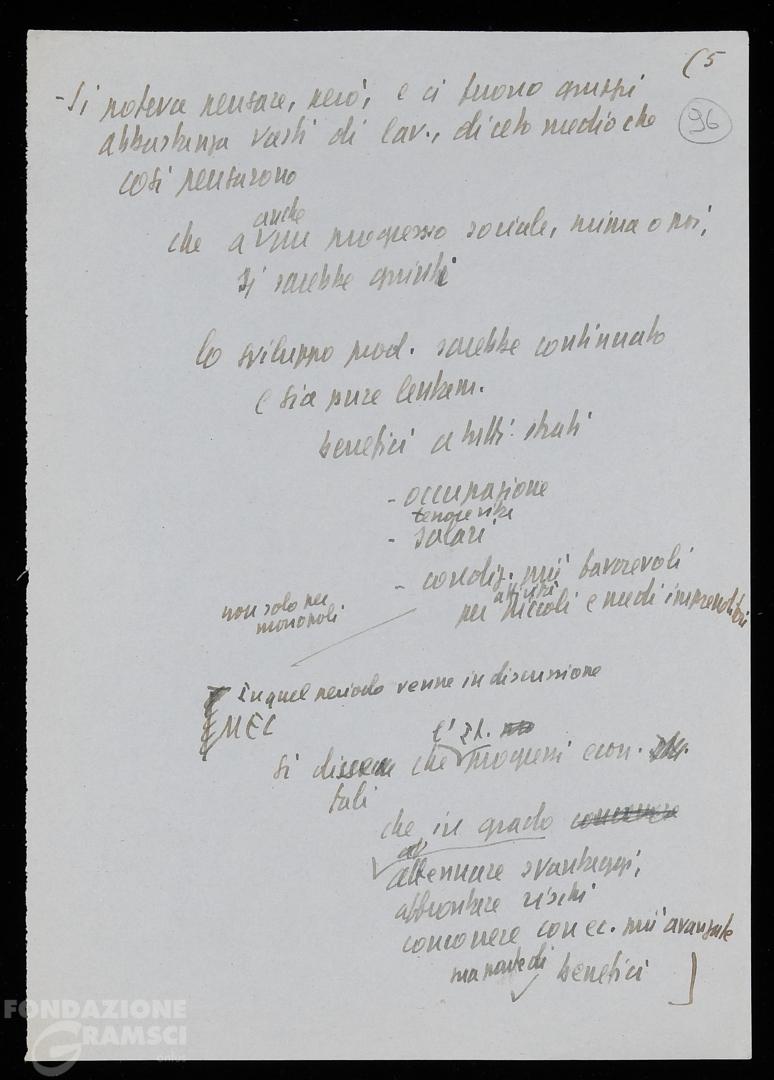 (5
96
- Si poteva pensare, però, e ci furono gruppi
abbastanza vasti di lav., di ceto medio che
così pensarono
anche
che a un progresso sociale, prima o poi,
si sarebbe giunti
lo sviluppo prod. sarebbe continuato
e sia pure lentam.
benefici a tutti strati
- occupazione
tenore vita
- salari
- condiz. più favorevoli
per piccoli e medi imprenditori
non solo per
monopoli
In quel periodo venne in discussione
MEC
l'It.
si disse che progressi econ.
tali
che in grado
ad
attenuare svantaggi,
affrontare rischi
concorrere con ec. più avanzate
ma parte di benefici
FONDAZIONE
GRAMSCI
onlus